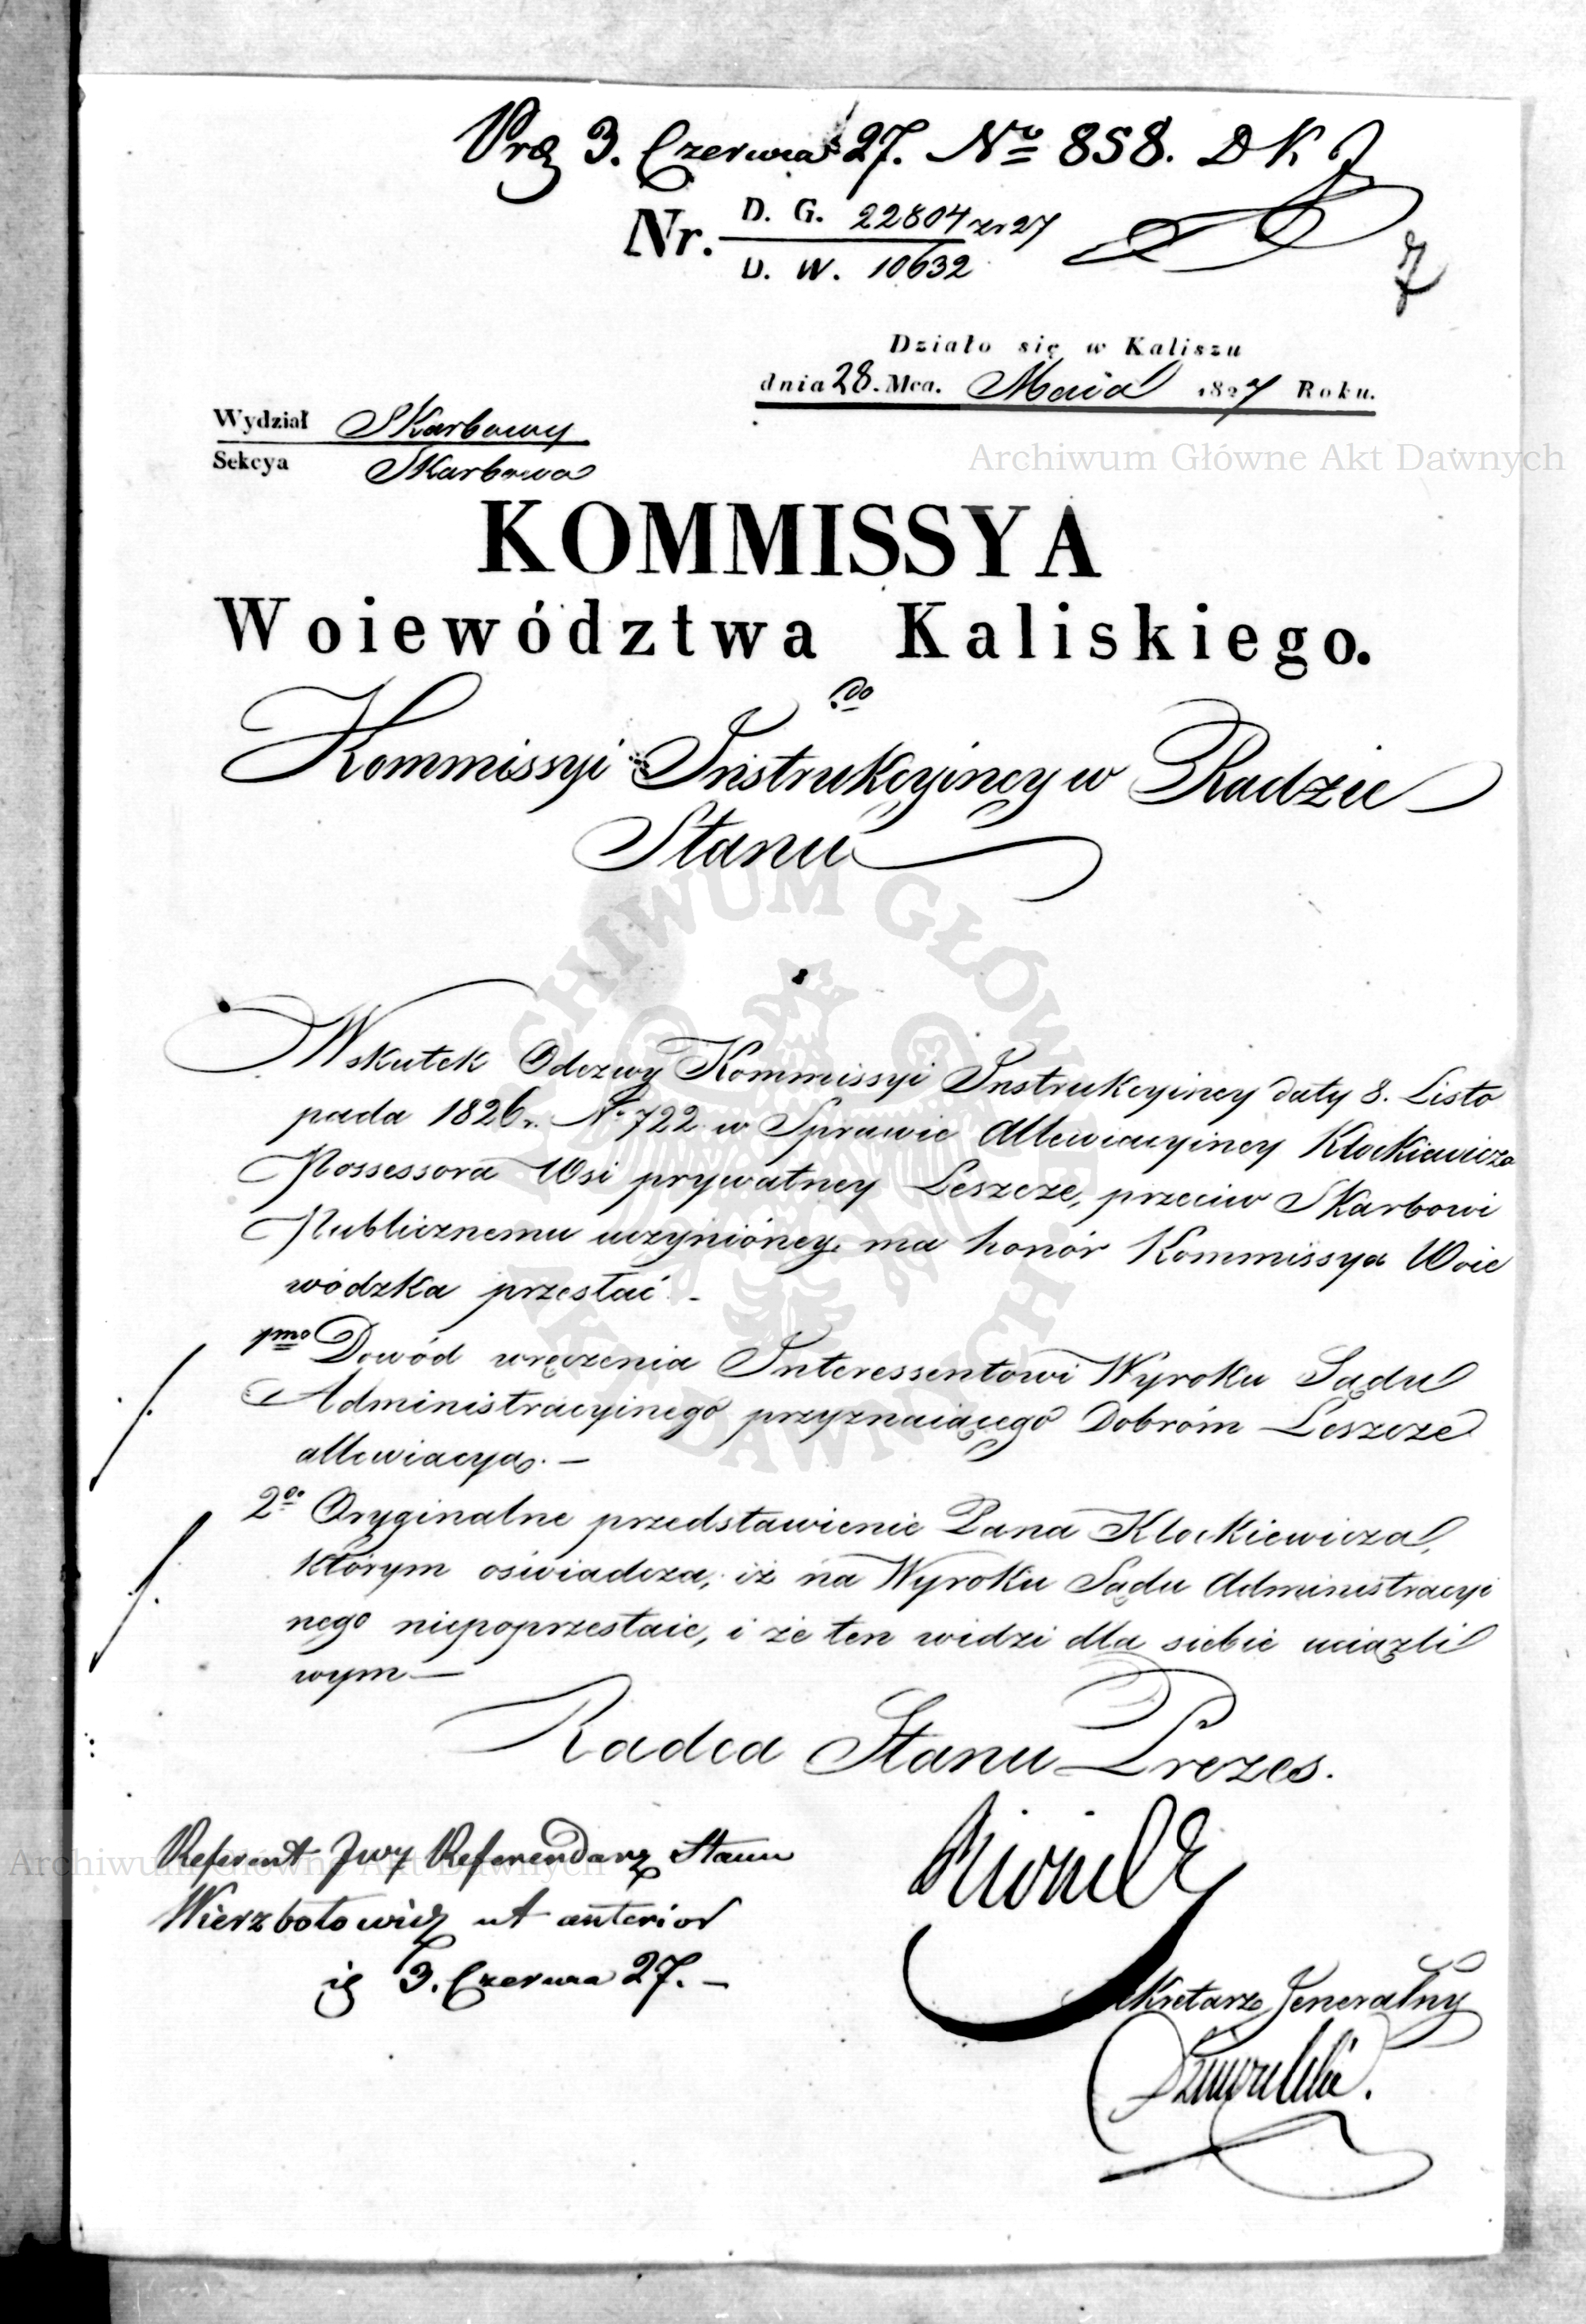 Prz 3. Czerwca 27. No 858. D K J
Nr. D. G. 22804 zr 27
D. W. 10632
7
Działo się w Kaliszu
dnia 28. Mca. Maia 1827 Roku.
Wydział Skarbowy
Sekcya Skarbowa
Archiwum Główne Akt Dawnych
KOMMISSYA
Woiewództwa Kaliskiego.
do
Kommissyi Instrukcyiney w Radzie
Stanu
Wskutek Odezwy Kommissyi Instrukcyiney daty 8. Listo
pada 1826 r. No 722 w Sprawie Allewiacyiney Klockiewicza
Possessora Wsi prywatney Leszcze, przeciw Skarbowi
Publicznemu uczynióney, ma honór Kommissya Woie
wódzka przesłać. -
1mo Dowód wręczenia Interessentowi Wyroku Sądu
Administracyinego przyznaiącego Dobróm Leszcze
allewiacyą. —
2do Oryginalne przedstawienie Pana Klockiewicza,
którym oświadcza, iż na Wyroku Sądu Administracyi
nego niepoprzestaie, i że ten widzi dla siebie uciążli
wym —
Radca Stanu Prezes.
Referent Jwy Referendarz Stanu
Wierzbołowicz ut anterior
3. Czerwca 27. —
Sekretarz Jeneralny
ARCHIWUM GŁÓWNE AKT DAWNYCH
Archiwum Główne Akt Dawnych